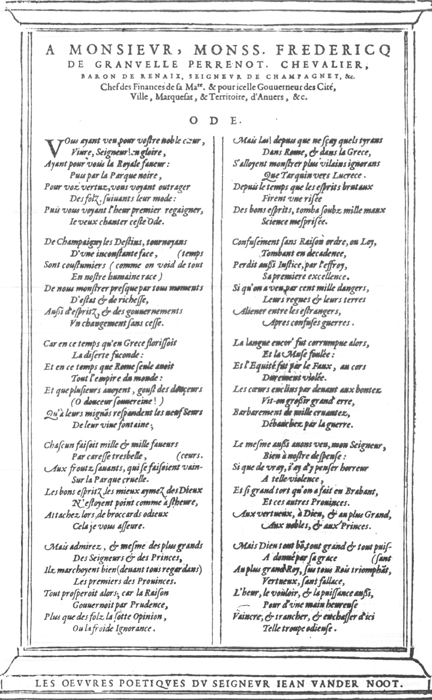 A MONSIEVR, MONSS. FREDERICQ
DE GRANVELLE PERRENOT. CHEVALIER,
BARON DE RENAIX, SEIGNEVR DE CHAMPAGNEY, &c.
Chef des Finances de sa Mate. & pour icelle Gouuerneur des Cité,
Ville, Marquesat, & Territoire, d'Anuers, &c.
ODE.
VOus ayant veu, pour vostre noble cœur,
Viure, Seigneur! en gloire,
Ayant pour vous la Royale faueur:
Puis par la Parque noire,
Pour voz vertuz, vous voyant outrager
Des folz, suiuants leur mode:
Puis vous voyant l'heur premier regaigner,
Ie veux chanter ceste Ode.
De Champaigny les Destins, tournoyans
D'vne inconstante face, (temps
Sont coustumiers (comme on void de tout
En nostre humaine race)
De nous monstrer presque par tous moments
D'estat & de richesse,
Aussi d'espritz, & des gouuernements
Vn changement sans cesse.
Car en ce temps qu'en Grece florissoit
La diserte faconde:
Et en ce temps que Rome seule auoit
Tout l'empire du monde:
Et que plusieurs auoyent, goust des douçeurs
(O douceur souuereine!)
Qu'à leurs mignõs respondent les neuf Seurs
De leur viue fontaine,
Chascun faisoit mille & mille faueurs
Par caresse tresbelle, (ceurs.
Aux fronts sçauants, qui se faisoient vain-
Sur la Parque cruelle.
Les bons espritz, les mieux aymez des Dieux
N'estoyent point comme à sheure,
Attachez lors, de broccards odieux
Cela je vous asseure.
Mais admirez, & mesme des plus grands
Des Seigneurs & des Princes,
Ilz marchoyent bien (deuant tous regardans)
Les premiers des Prouinces.
Tout prosperoit alors, car la Raison
Gouuernoit par Prudence,
Plus que des folz la sotte Opinion,
Ou la froide Ignorance.
Mais las! depuis que ne sçay quels tyrans
Dans Rome, & dans la Grece,
S'alloyent monstrer plus vilains ignorans
Que Tarquin vers Lucrece.
Depuis le temps que les esprits brutaux
Firent vne risée
Des bons esprits, tomba soubz mille maux
Science mesprisée.
Confusément sans Raison ordre, ou Loy,
Tombant en decadence,
Perdit aussi Iustice, par l'effroy,
Sa premiere excellence.
Si qu'on a veu, par cent mille dangers,
Leurs regnes & leurs terres
Aliener entre les estrangers,
Apres confuses guerres.
La langue encor' fut corrumpue alors,
Et la Muse foulée:
Et l'Equité fut par le Faux, au cors
Durement violée.
Les cœurs enclins par deuant aux bontez
Vit-on grossir grand' erre,
Barbarement de mille cruautez,
Débauchez par la guerre.
Le mesme aussi auons veu, mon Seigneur,
Bien à nostre despense:
Si que de vray, i'ay d'y penser horreur
A telle violence,
Et si grand tort qu'on a fait en Brabant,
Et ces autres Prouinces.
Aux vertueux, à Dieu, & au plus Grand,
Aux nobles, & aux Princes.
Mais Dieu tout bõ, tout grand & tout puis-
A donné par sa grace (sant
Au plus grand Roy, sus tous Rois triomphãt,
Vertueux, sans fallace,
L'heur, le vouloir, & la puissance aussi,
Pour d'vne main heureuse
Vaincre, & trancher, & enchasser d'ici
Telle troupe odieuse.
LES OEUVRES POETIQVES DV SEIGNEVR IEAN VANDER NOOT.